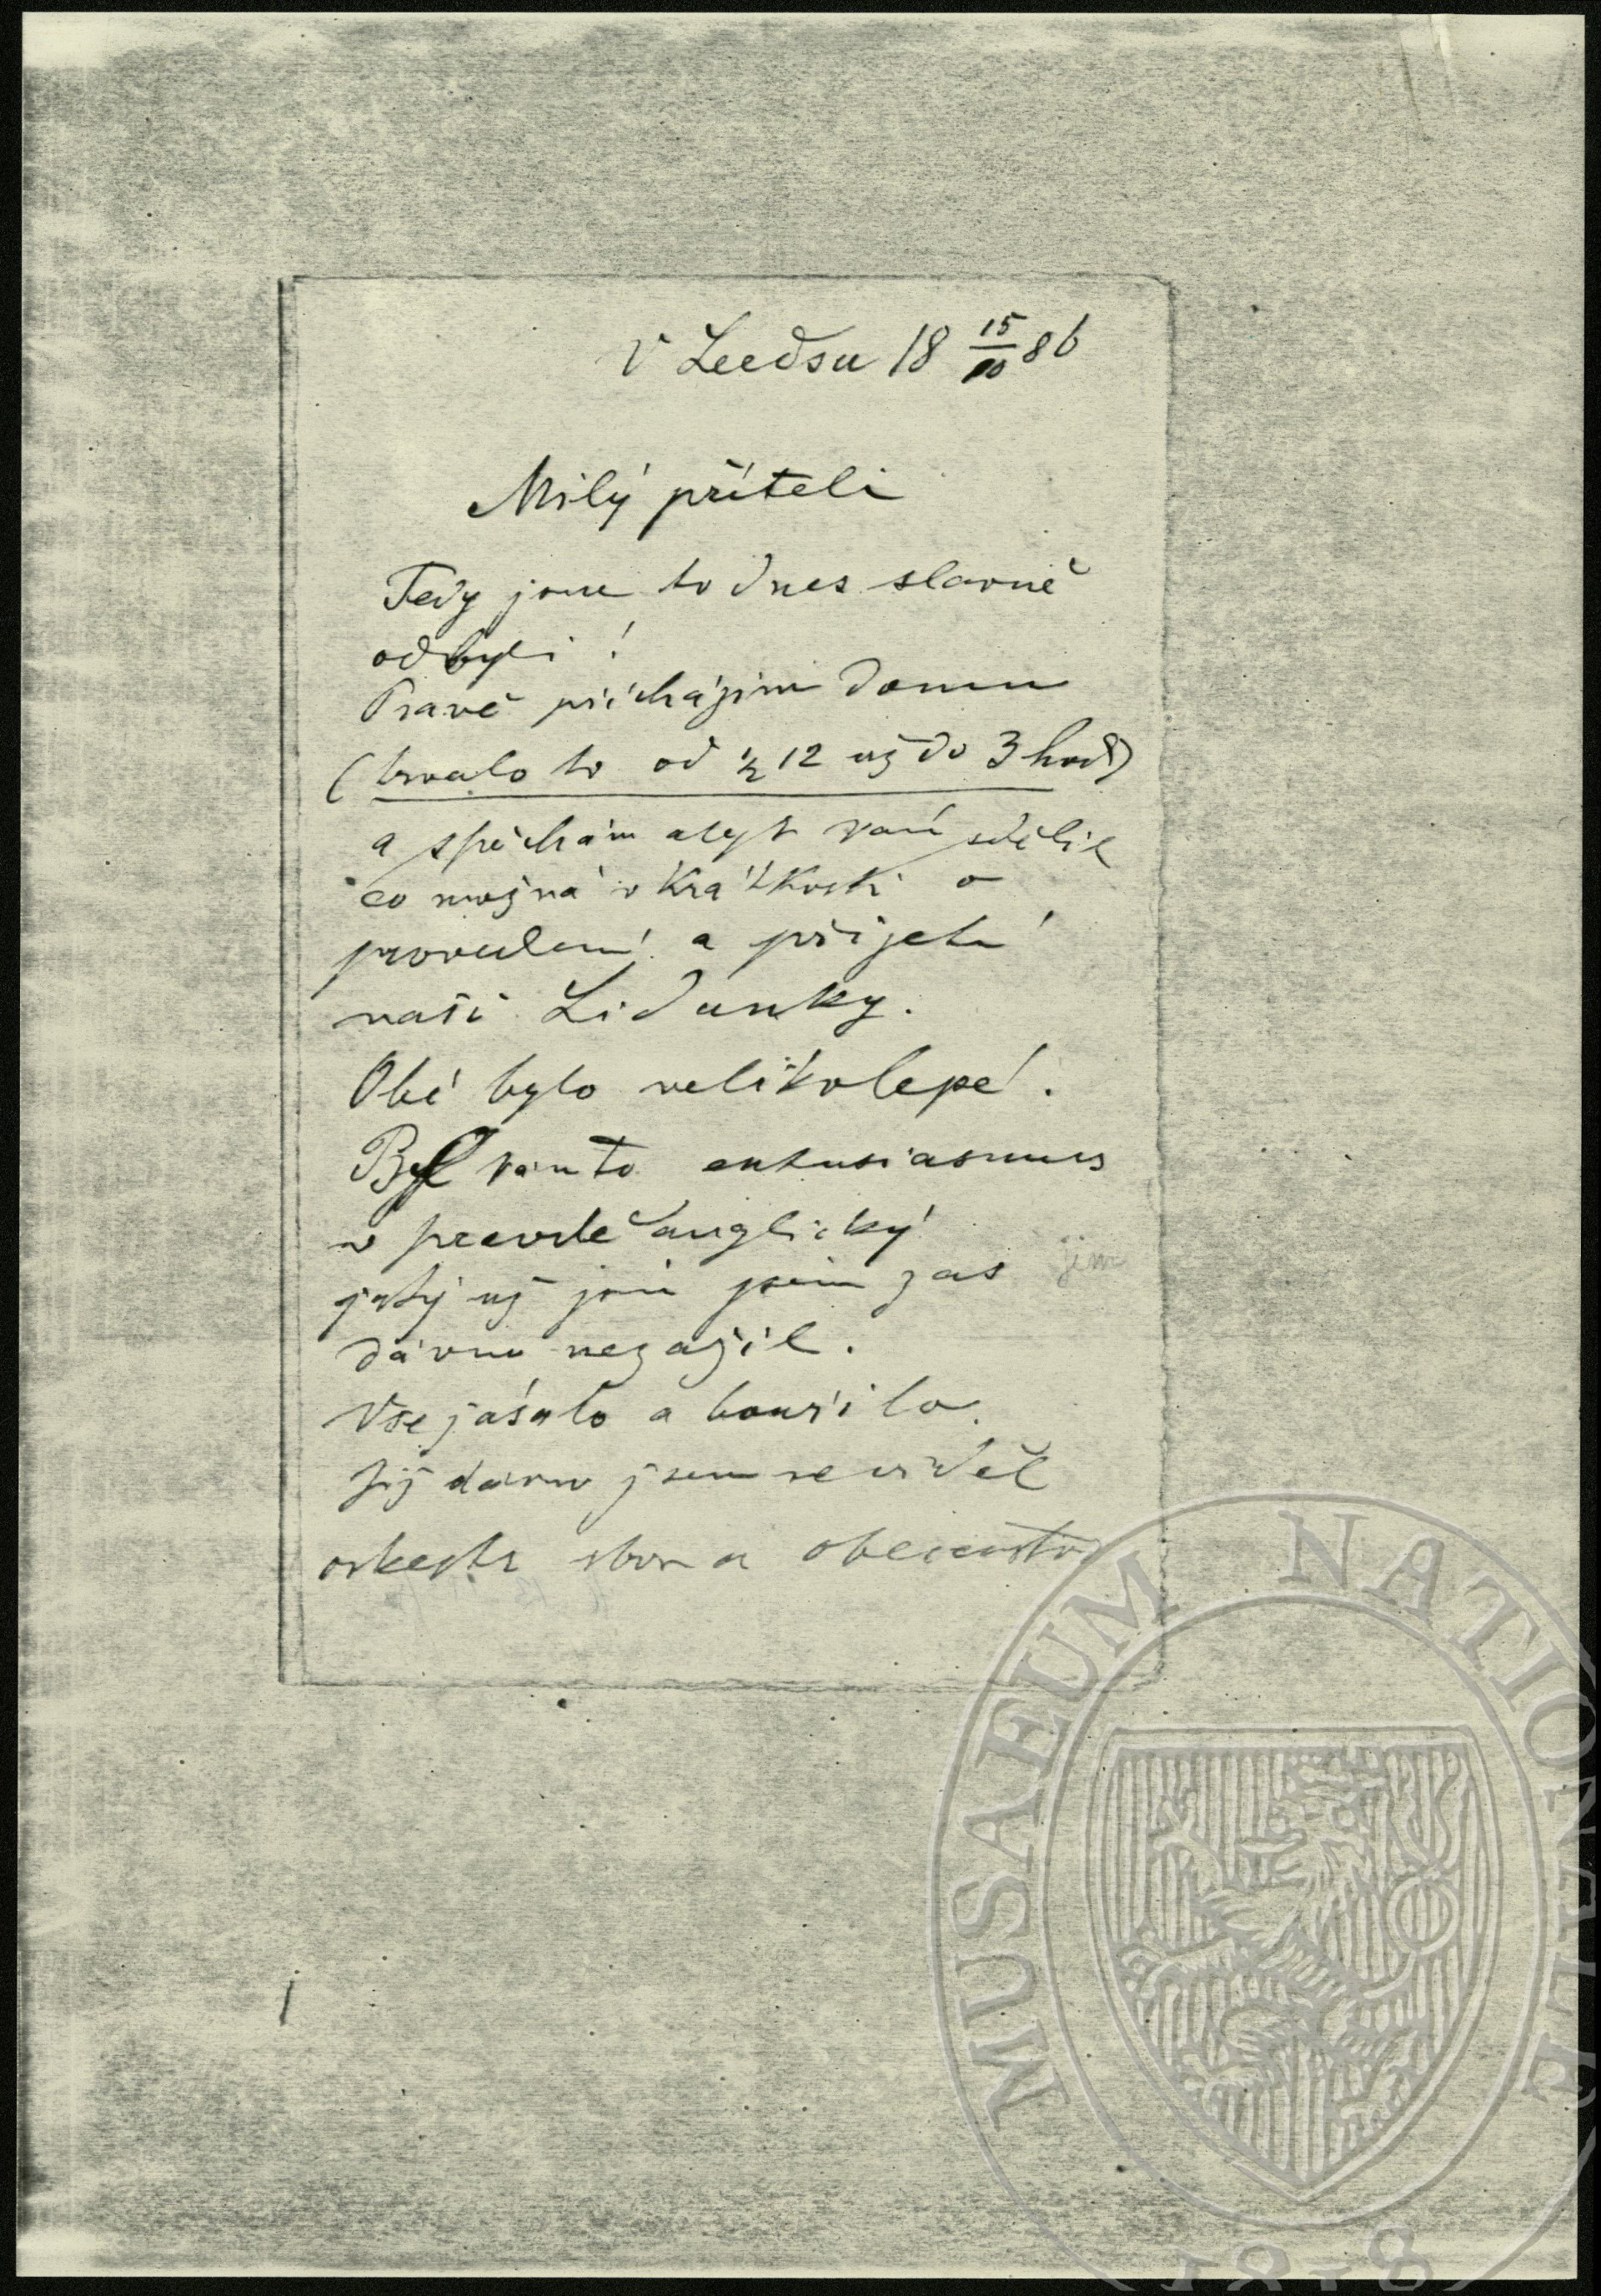 V Leedsu 18 15/10 86
Milý příteli
Tedy jsme to dnes slavně
odbyli!
Pravě přicházím domu
(trvalo to od ½ 12 až do 3 hod)
a spěchám abych Vám sdělil
co možná v krátkosti o
provedení a přijetí
naší Lidunky.
Obé bylo velikolepé.
Byl Vám to enthusiasmus
v pravdě anglický
jaký už jsem zas
jim
dávno nezažil.
Vše jásalo a bouřilo.
Již dávno jsem neviděl
orkestr sbor a obecenstvo
1
MUSAEUM NATIONALE
1818